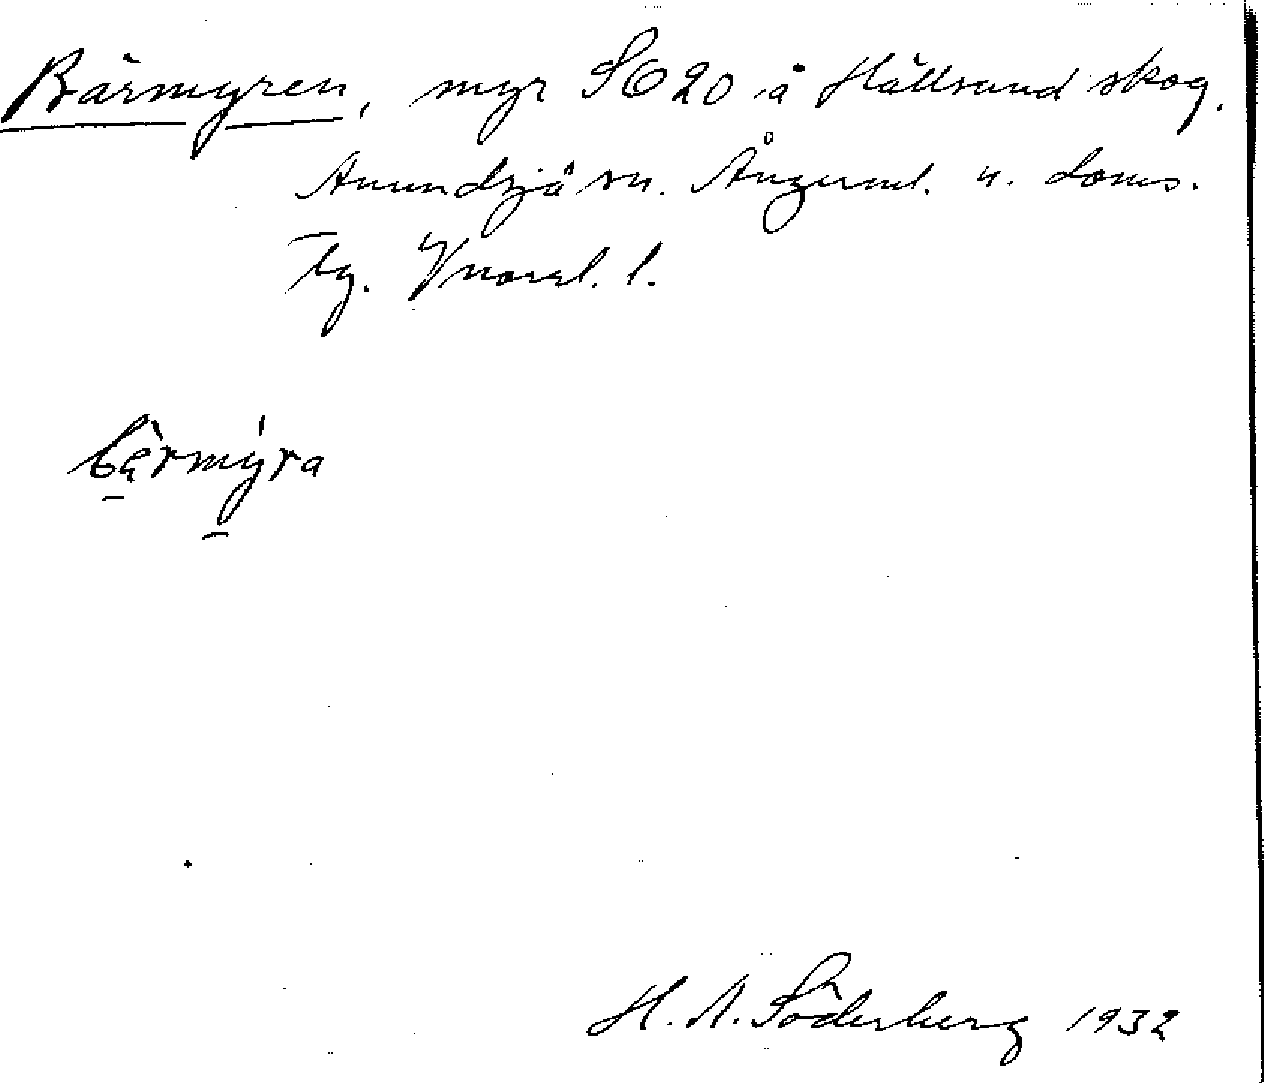 Bärmyren, myr SO 20 å Hällsund skog.
Anundsjö sn. Ångerml. n. doms.
Tg. Vnorrl. l.
bärmyra
H. A. Söderberg 1932